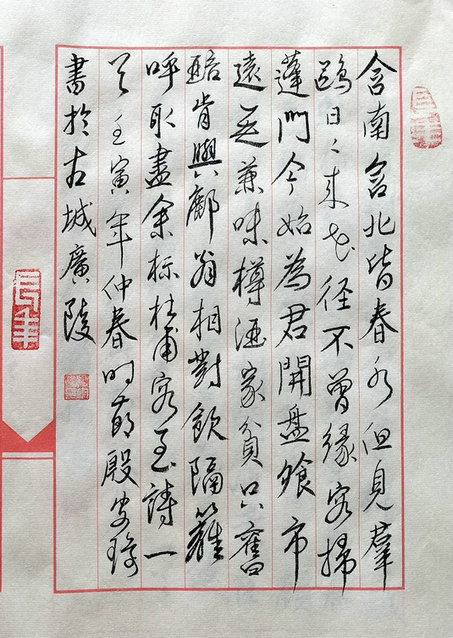 舍南舍北皆春水但見羣
鷗日〻來花径不曾緣客掃
蓬門今始為君開盤飱市
遠無兼味樽酒家貧只舊
醅肯與鄰翁相對飲隔籬
呼取盡余杯杜甫客至詩一
首壬寅年仲春时節殷
書於古城廣陵